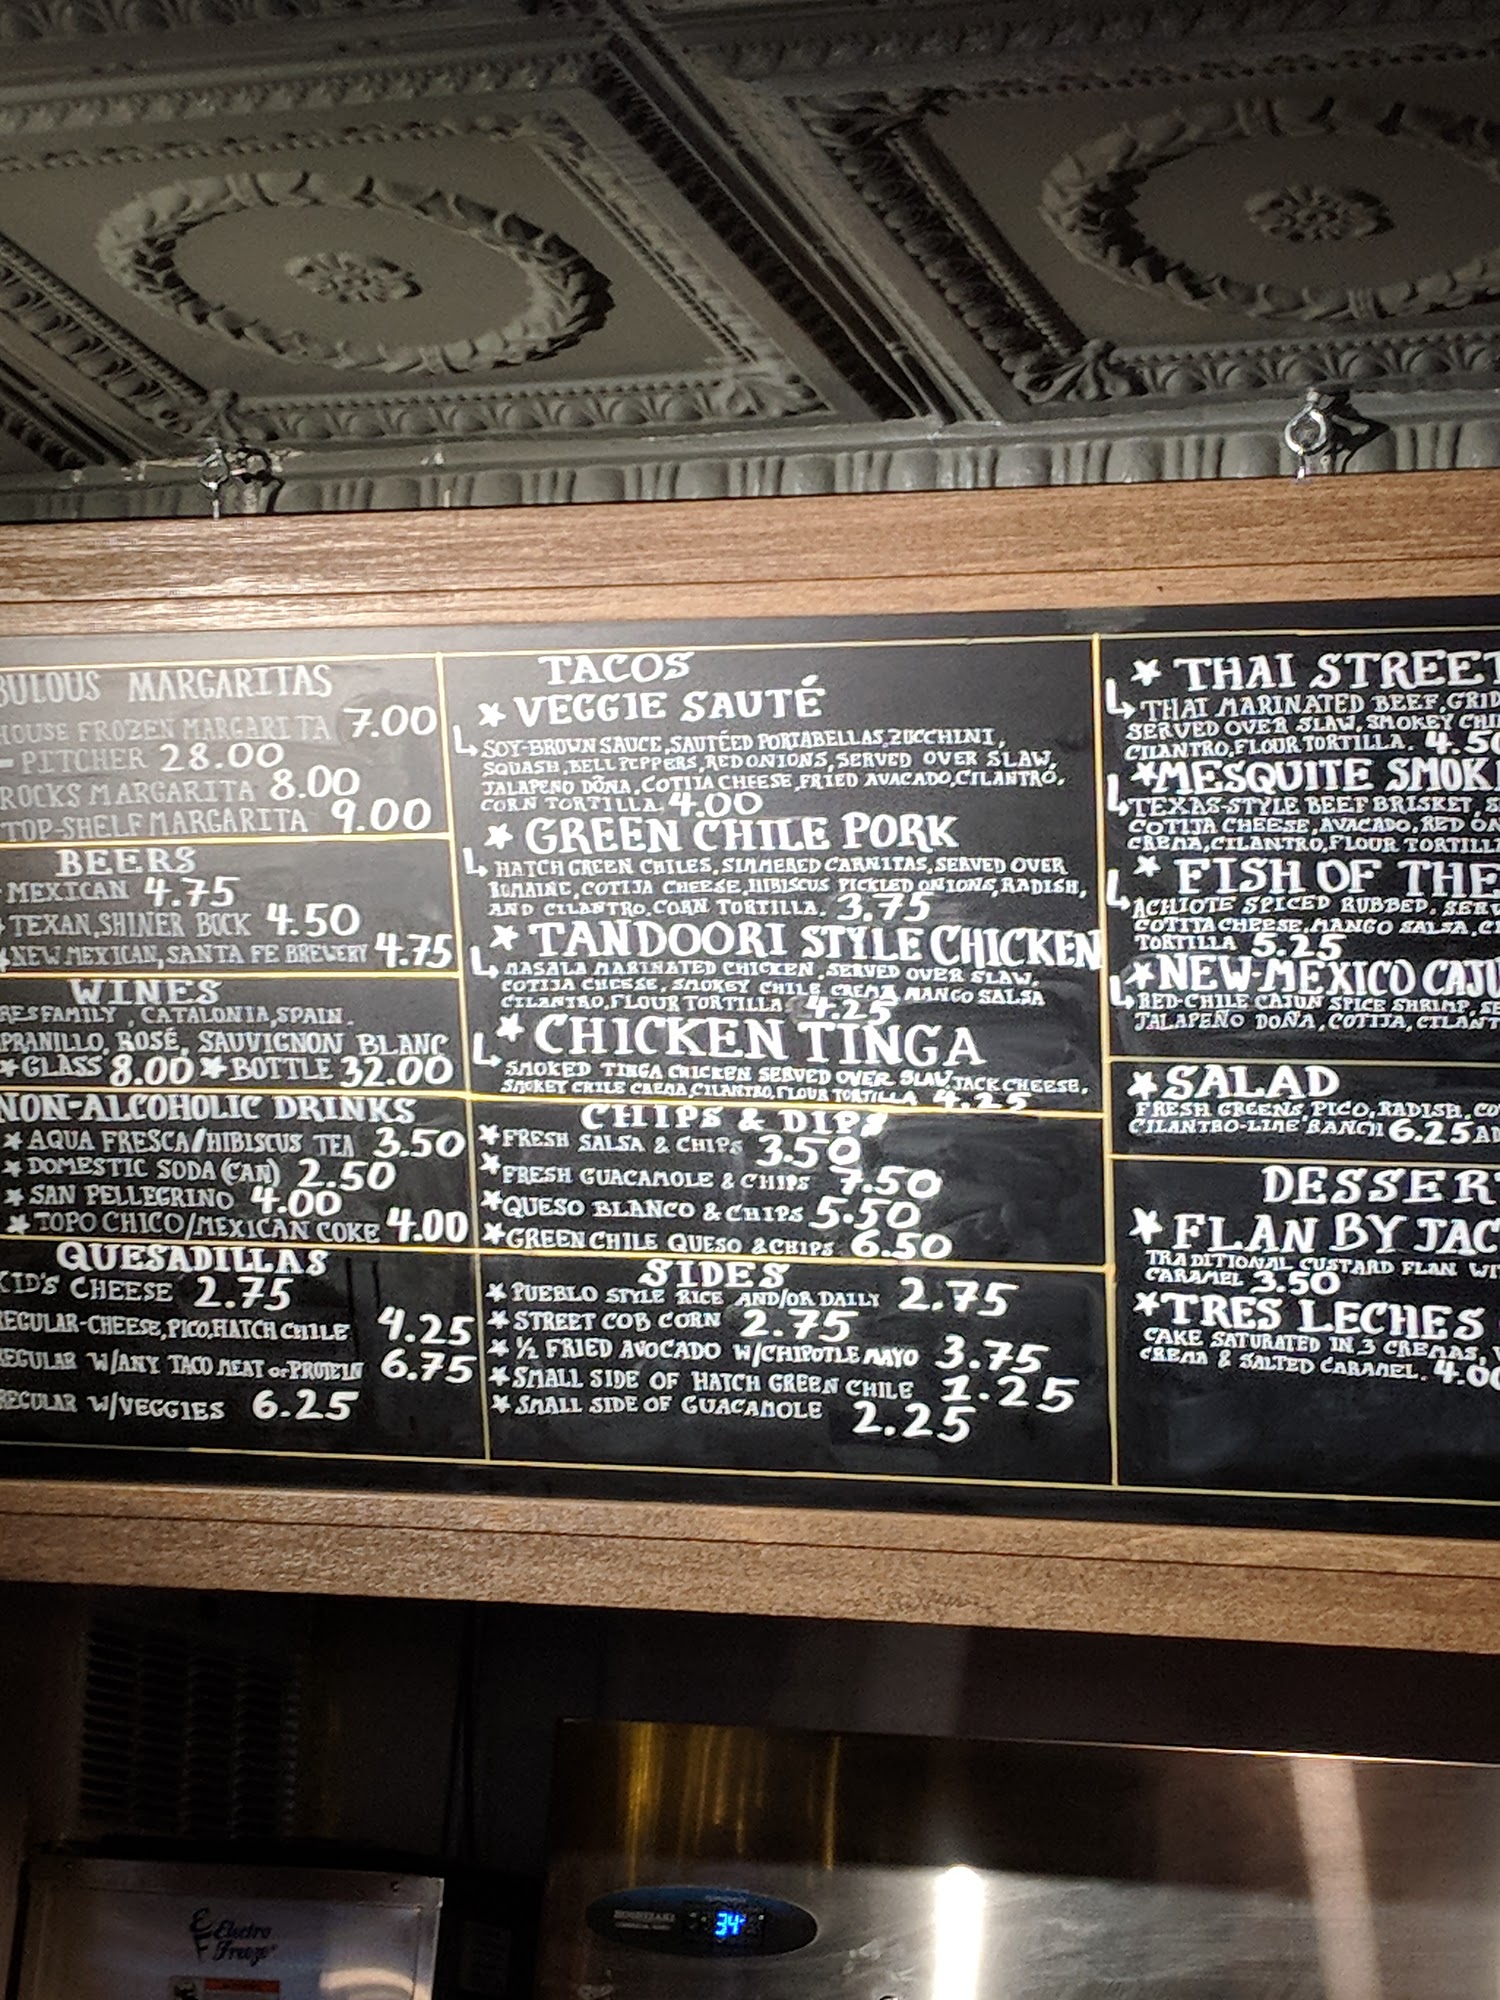 BULOUS MARGARITAS
HOUSE FROZEN MARGARITA 7.00
- PITCHER 28.00
ROCKS MARGARITA 8.00
TOP-SHELF MARGARITA 9.00
BEERS
MEXICAN 4.75
TEXAN, SHINER BOCK 4.50
NEW MEXICAN, SANTA FE BREWERY 4.75
WINES
RES FAMILY, CATALONIA, SPAIN.
PRANILLO, ROSÉ, SAUVIGNON BLANC
GLASS 8.00 BOTTLE 32.00
NON-ALCOHOLIC DRINKS
AQUA FRESCA/HIBISCUS TEA 3.50
DOMESTIC SODA (CAN) 2.50
SAN PELLEGRINO 4.00
TOPO CHICO/MEXICAN COKE 4.00
QUESADILLAS
KID'S CHEESE 2.75
REGULAR-CHEESE, PICO, HATCH CHILE 4.25
REGULAR W/ANY TACO MEAT or PROTEIN 6.75
REGULAR W/VEGGIES 6.25
TACOS
VEGGIE SAUTÉ
SOY-BROWN SAUCE, SAUTÉED PORTABELLAS, ZUCCHINI,
SQUASH, BELL PEPPERS, RED ONIONS, SERVED OVER SLAW,
JALAPENO DOÑA, COTIJA CHEESE, FRIED AVACADO, CILANTRO,
CORN TORTILLA. 4.00
GREEN CHILE PORK
HATCH GREEN CHILES, SIMMERED CARNITAS, SERVED OVER
ROMAINE, COTIJA CHEESE, HIBISCUS PICKLED ONIONS, RADISH,
AND CILANTRO. CORN TORTILLA. 3.75
TANDOORI STYLE CHICKEN
MASALA MARINATED CHICKEN, SERVED OVER SLAW,
COTIJA CHEESE, SMOKEY CHILE CREMA, MANGO SALSA
CILANTRO, FLOUR TORTILLA 4.25
CHICKEN TINGA
SMOKED TINGA CHICKEN SERVED OVER SLAW, JACK CHEESE,
SMOKEY CHILE CREMA, CILANTRO, FLOUR TORTILLA 4.25
CHIPS & DIPS
FRESH SALSA & CHIPS 3.50
FRESH GUACAMOLE & CHIPS 7.50
QUESO BLANCO & CHIPS 5.50
GREEN CHILE QUESO & CHIPS 6.50
SIDES
PUEBLO STYLE RICE AND/OR DAILY 2.75
STREET COB CORN 2.75
½ FRIED AVOCADO W/CHIPOTLE MAYO 3.75
SMALL SIDE OF HATCH GREEN CHILE 1.25
SMALL SIDE OF GUACAMOLE 2.25
THAI STREET
THAI MARINATED BEEF, GRID
SERVED OVER SLAW, SMOKEY CHI
CILANTRO, FLOUR TORTILLA. 4.50
MESQUITE SMOK
TEXAS-STYLE BEEF BRISKET, S
COTIJA CHEESE, AVACADO, RED ON
CREMA, CILANTRO, FLOUR TORTILL
FISH OF THE
ACHIOTE SPICED RUBBED, SERV
COTITA CHEESE, MANGO SALSA, CI
TORTILLA 5.25
NEW-MEXICO CAJU
RED-CHILE CAJUN SPICE SHRIMP, SE
JALAPEÑO DOÑA, COTIJA, CILANT
SALAD
FRESH GREENS, PICO, RADISH, CO
CILANTRO-LIME RANCH 6.25
DESSER
FLAN BY JAC
TRADITIONAL CUSTARD FLAN WI
CARAMEL 3.50
TRES LECHES
CAKE SATURATED IN 3 CREMAS,
CREMA & SALTED CARAMEL. 4.00
Electro
Freeze
HOSHIZAKI
34